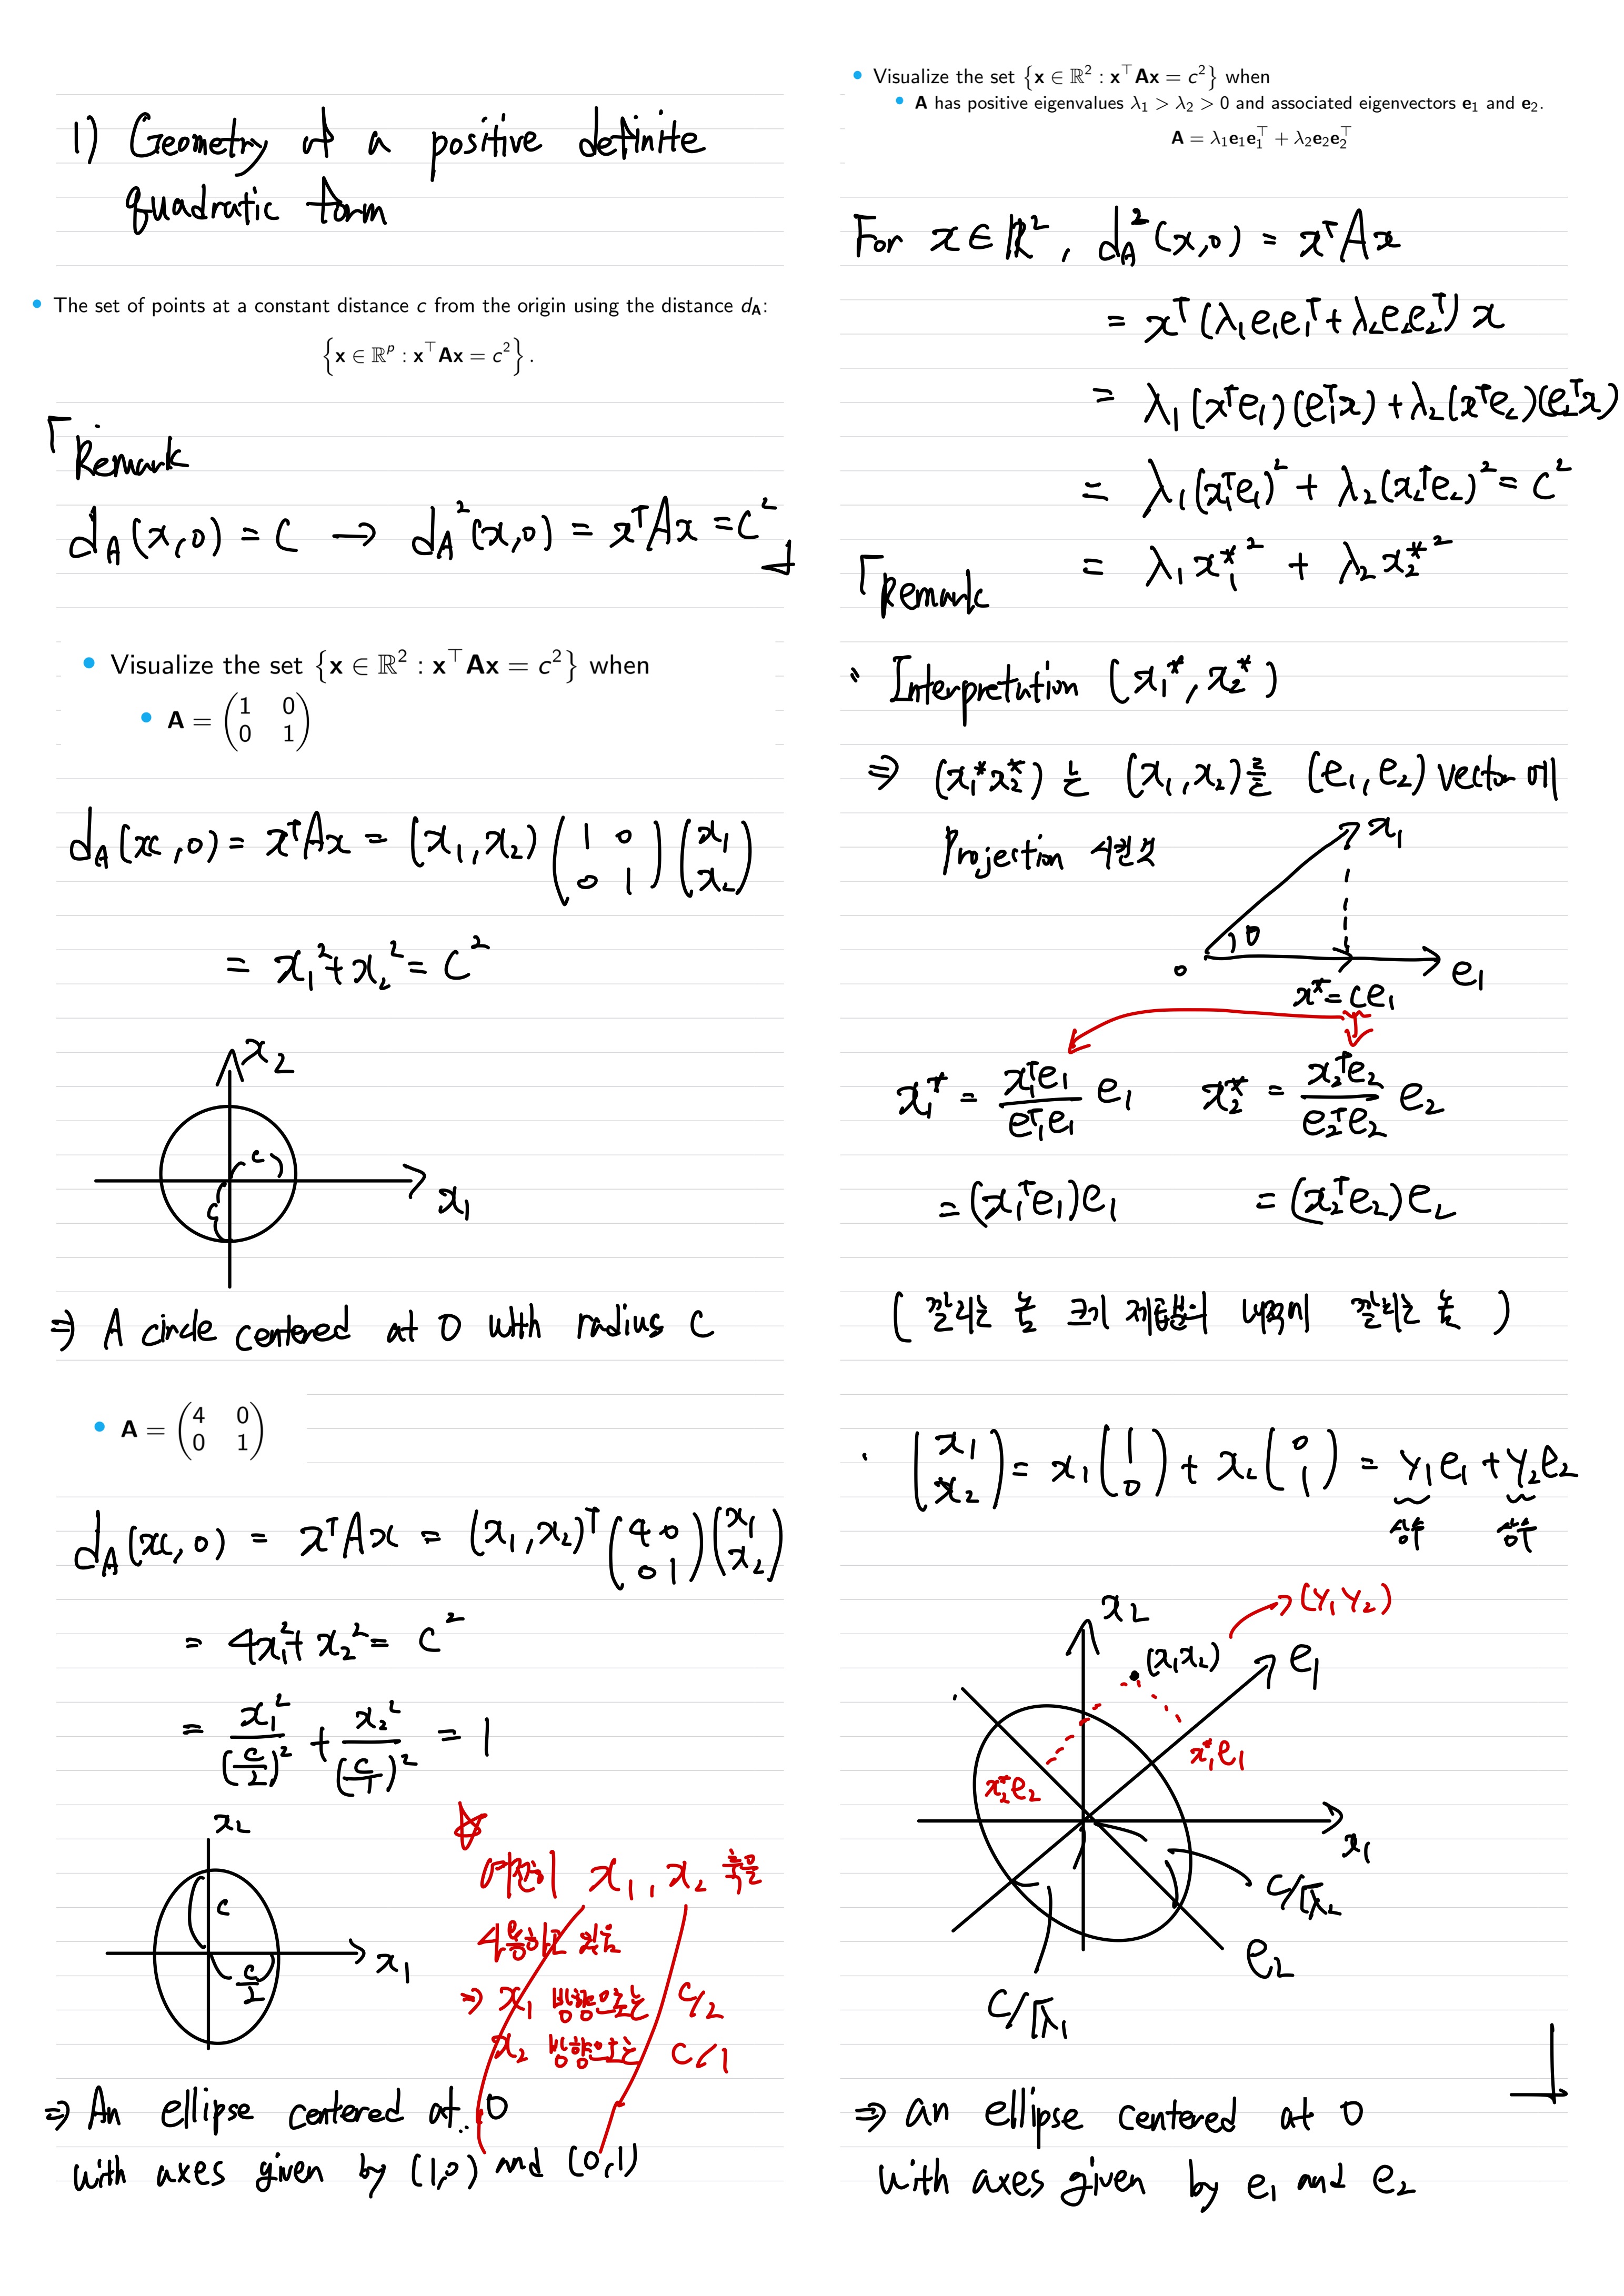 1) Geometry of a positive definite
quadratic form
• The set of points at a constant distance c from the origin using the distance d_A:
{x ∈ ℝ^p : x^⊤Ax = c²}.
「Remark
d_A(x,0) = C → d_A²(x,0) = x^T A x = C² 」
• Visualize the set {x ∈ ℝ² : x^⊤Ax = c²} when
• A = (1 0
0 1)
d_A(x,0) = x^T A x = (x₁,x₂) (1 0
0 1) (x₁
x₂)
= x₁² + x₂² = C²
x₂
c
c
x₁
⇒ A circle centered at 0 with radius C
• A = (4 0
0 1)
d_A(x,0) = x^T A x = (x₁,x₂)^T (4 0
0 1) (x₁
x₂)
= 4x₁² + x₂² = C²
= x₁²/(c/2)² + x₂²/(c/1)² = 1
x₂
c
c/2
x₁
☆
여전히 x₁, x₂ 축을
사용하고 있음
⇒ x₁ 방향으로는 C/2
x₂ 방향으로는 C/1
⇒ An ellipse centered at 0
with axes given by (1,0) and (0,1)
• Visualize the set {x ∈ ℝ² : x^⊤Ax = c²} when
• A has positive eigenvalues λ₁ > λ₂ > 0 and associated eigenvectors e₁ and e₂.
A = λ₁e₁e₁^⊤ + λ₂e₂e₂^⊤
For x ∈ ℝ², d_A²(x,0) = x^T A x
= x^T (λ₁e₁e₁^T + λ₂e₂e₂^T) x
= λ₁(x^T e₁)(e₁^T x) + λ₂(x^T e₂)(e₂^T x)
= λ₁(x₁^T e₁)² + λ₂(x₂^T e₂)² = C²
= λ₁x₁*² + λ₂x₂*²
「Remark
· Interpretution (x₁*, x₂*)
⇒ (x₁* x₂*) 는 (x₁,x₂)를 (e₁,e₂) vector에
Projection 시킨것
x₁
θ
0
e₁
x* = ce₁
x₁* = (x₁^T e₁)/(e₁^T e₁) e₁ x₂* = (x₂^T e₂)/(e₂^T e₂) e₂
= (x₁^T e₁)e₁ = (x₂^T e₂)e₂
( 깔리는 놈 크기 제곱분의 내적에 깔리는 놈 )
· (x₁
x₂) = x₁ (1
0) + x₂ (0
1) = Y₁e₁ + Y₂e₂
상수 상수
x₂
(x₁x₂)
→ (Y₁ Y₂)
e₁
x₁*e₁
x₂*e₂
x₁
C/√λ₂
e₂
C/√λ₁
」
⇒ an ellipse centered at 0
with axes given by e₁ and e₂